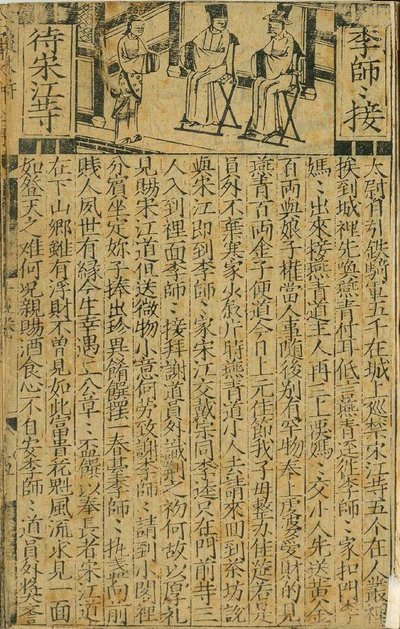 李師〻接
待宋江䓁
太尉自引鉄騎軍五千在城上巡禁宋江䓁五个在人叢裡
挨到城裡先喚燕青付耳低言燕青逕往李師〻家扣門李
媽〻出來接燕青道主人再三上覆媽〻交小人先送黃金
百両與娘子權當人事隨後別有罕物奉上虔婆愛財的見
燕青百両金子便道今日上元佳節我子母整力佳筵若是
員外不棄寒家少叙片時燕青道小人去請來回到茶坊說
與宋江即到李師〻家宋江交戴宗同李逵只在門前䓁三
人入到裡面李師〻接拜謝道員外識荆之初何故以厚礼
見賜宋江道但送微物小意何劳致謝李師〻請到小閣裡
分賔坐定妳子捧出珍異饌一春李師〻执盞向前
賤人夙世有緣今生幸遇二公草〻盃盤以奉長者宋江道
在下山鄉雖有浮財不曽見如此富貴花魁風流求見一面
如登天之难何况親賜酒食心不自安李師〻道員外奨